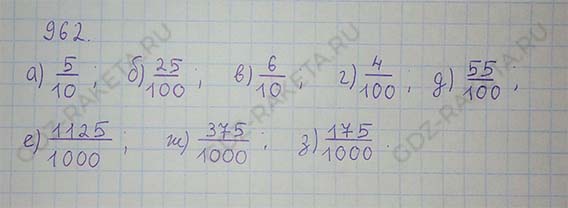 962.
а) 5/10 ; б) 25/100 ; в) 6/10 ; г) 4/100 ; д) 55/100 ,
е) 1125/1000 ; ж) 375/1000 ; з) 175/1000 .
GDZ-RAKETA.RU
GDZ-RAKETA.RU
GDZ-RAKETA.RU
GDZ-RAKETA.RU